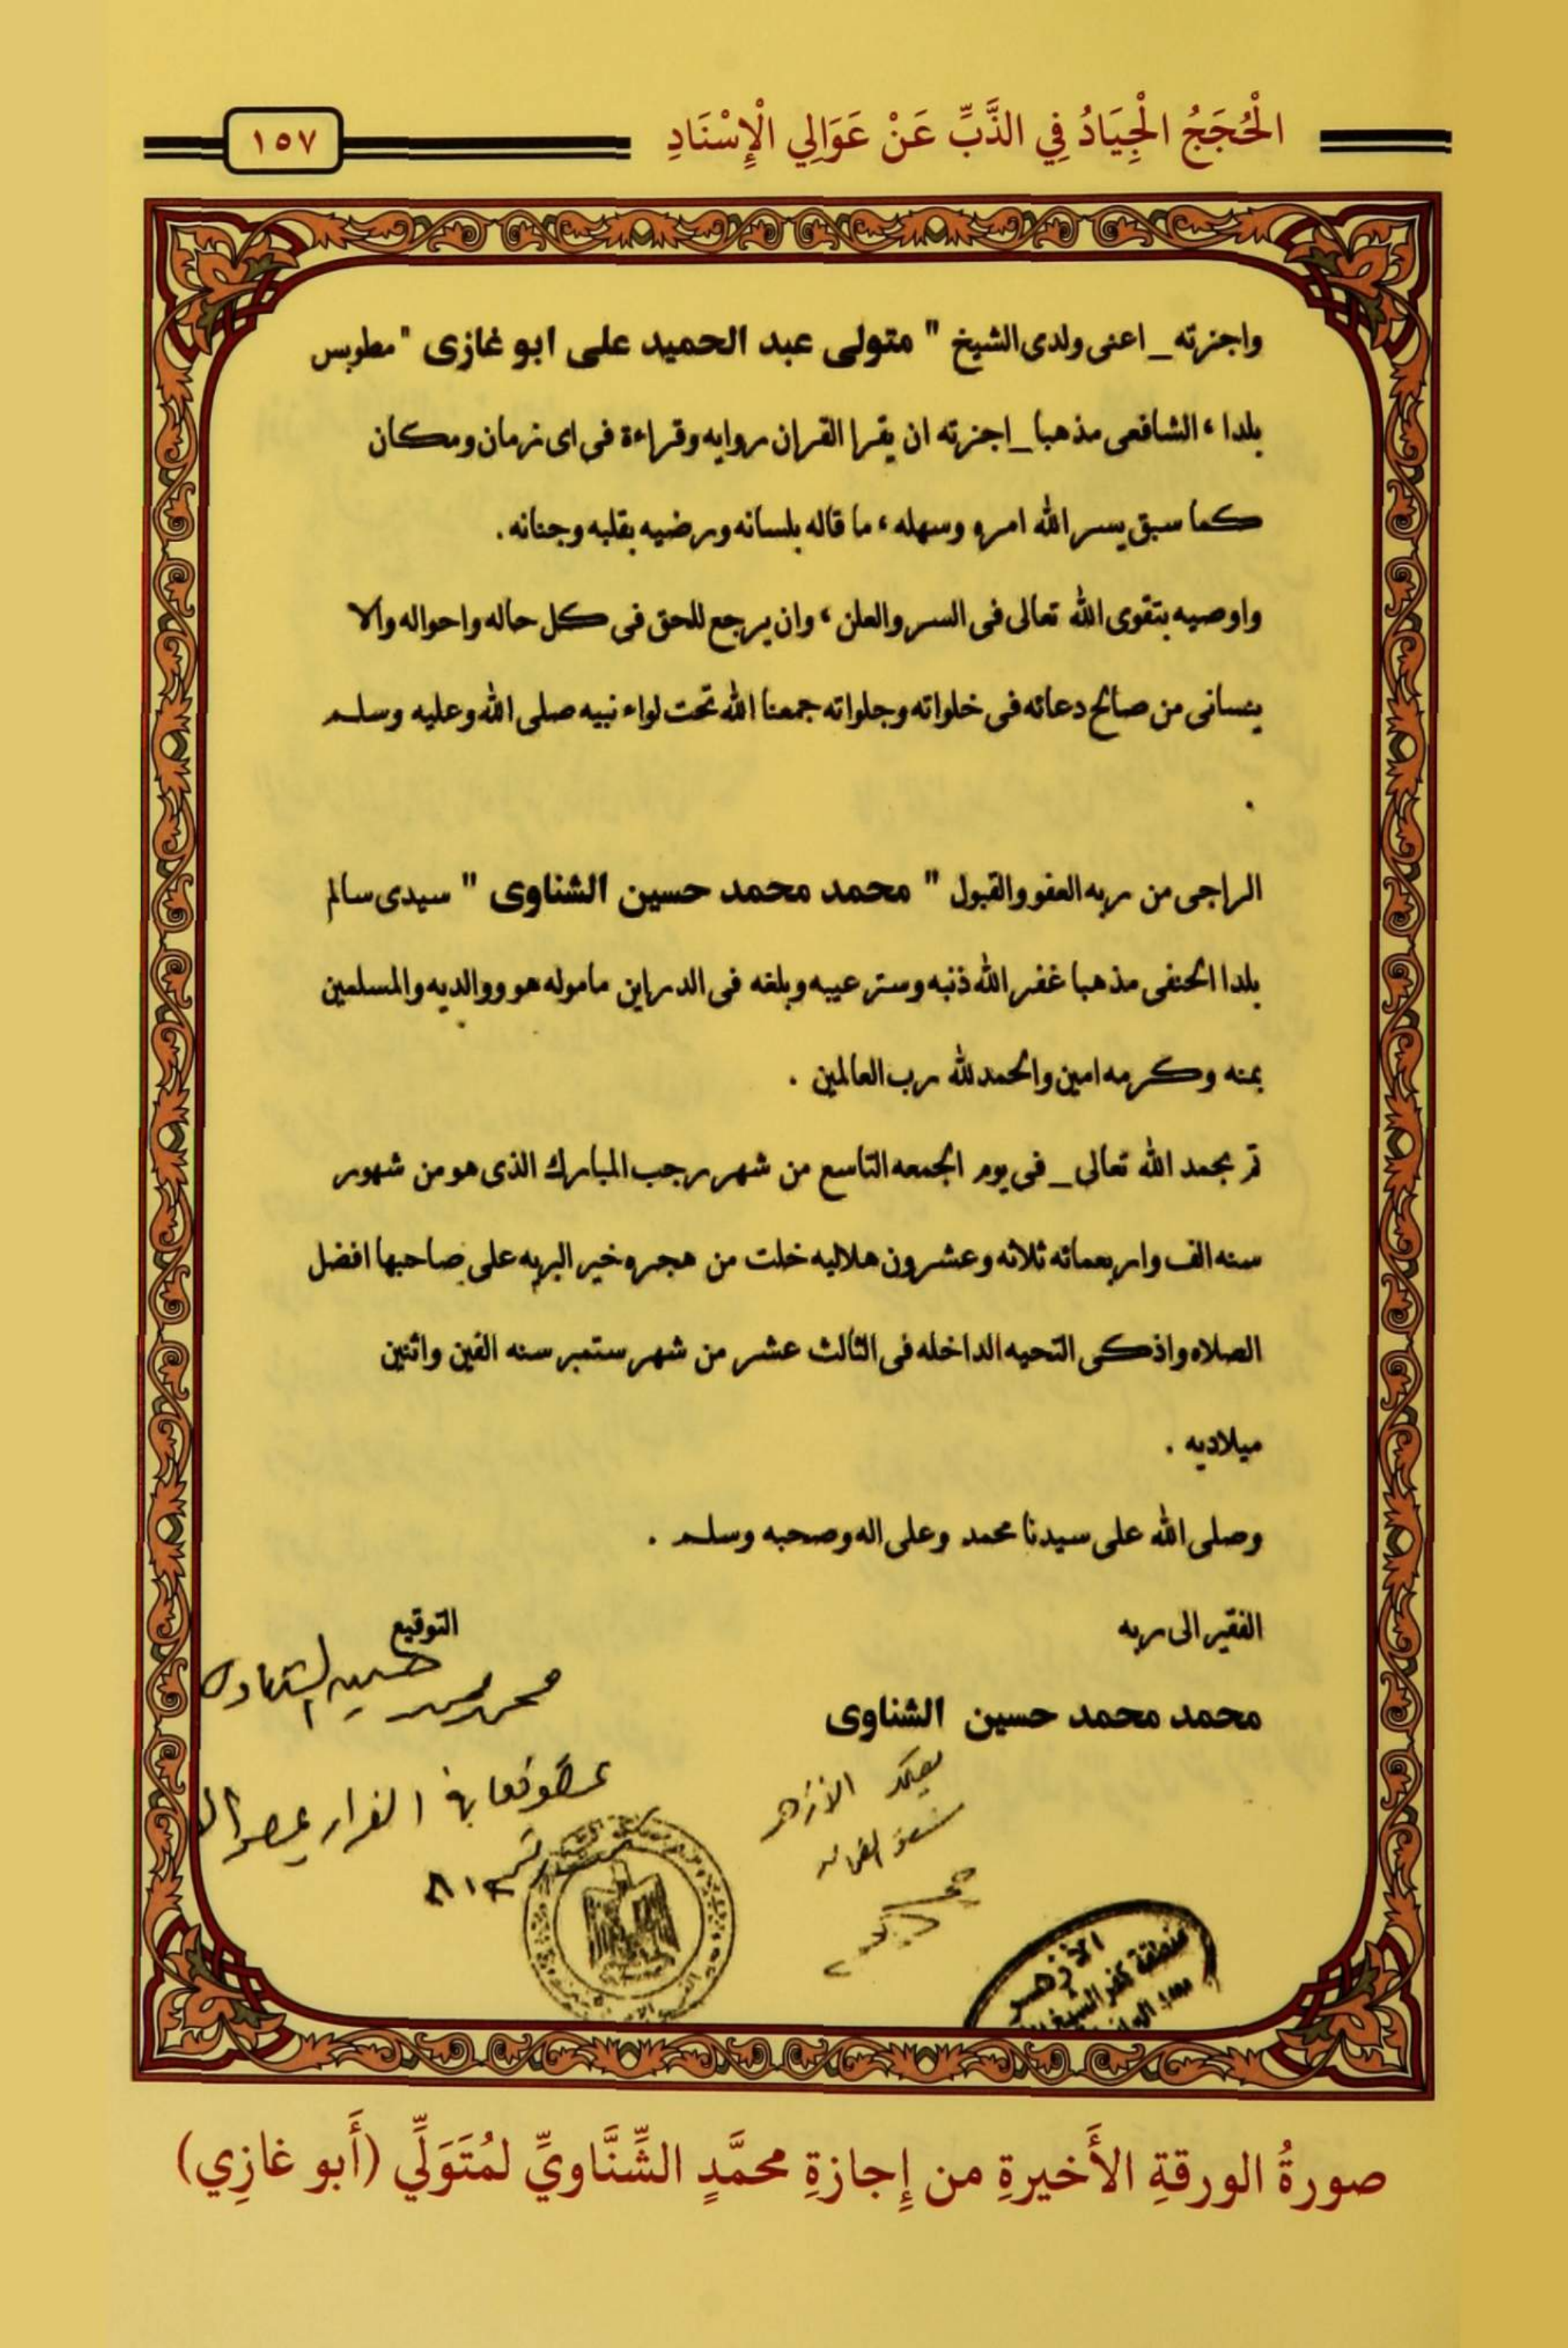 الْحُجَجُ الْجِيَادُ فِي الذَّبِّ عَنْ عَوَالِي الْإِسْنَادِ
١٥٧
واجزته _ اعنى ولدى الشيخ " متولى عبد الحميد على ابو غازى " مطوبس
بلدا ، الشافعى مذهبا _ اجزته ان يقرا القران روايه وقراءة فى اى زمان ومكان
كما سبق يسر الله امره وسهله ، ما قاله بلسانه ورضيه بقلبه وجنانه .
واوصيه بتقوى الله تعالى فى السر والعلن ، وان يرجع للحق فى كل حاله واحواله والا
ينسانى من صالح دعائه فى خلواته وجلواته جمعنا الله تحت لواء نبيه صلى الله وعليه وسلم
.
الراجى من ربه العفو والقبول " محمد محمد حسين الشناوى " سيدى سالم
بلدا الحنفى مذهبا غفر الله ذنبه وستر عيبه وبلغه فى الدراين مأموله هو ووالديه والمسلمين
بمنه وكرمه امين والحمد لله رب العالمين .
تم بحمد الله تعالى _ فى يوم الجمعه التاسع من شهر رجب المبارك الذى هو من شهور
سنه الف واربعمائه ثلاثه وعشرون هلاليه خلت من هجره خير البريه على صاحبها افضل
الصلاه واذكى التحيه الداخله فى الثالث عشر من شهر ستمبر سنه الفين واثنين
ميلاديه .
وصلى الله على سيدنا محمد وعلى اله وصحبه وسلم .
الفقير الى ربه
التوقيع
محمد محمد حسين الشناوى
محمد محمد حسين الشناوى
يعتمد الأزهر
الأزهر
منطقة كفر الشيخ
صورةُ الورقةِ الأَخيرةِ من إِجازةِ محمَّدٍ الشِّنَّاويِّ لمُتَوَلِّي (أَبو غازِي)